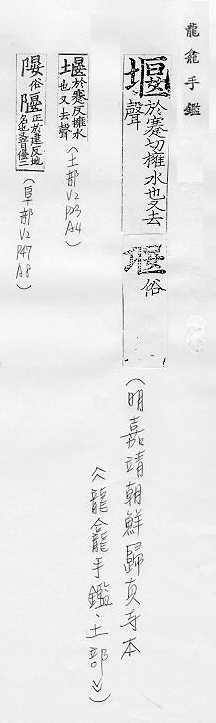 龍龕手鑑
堰於蹇切擁水也又去
聲
俗
(明嘉靖朝鮮歸真寺本
《龍龕手鑑·土部》)
堰於蹇反擁水
也又去聲
(土部 V2 P23 A4)
俗隁正於建反地
名也又音偃二
(阜部 V2 P47 A8)